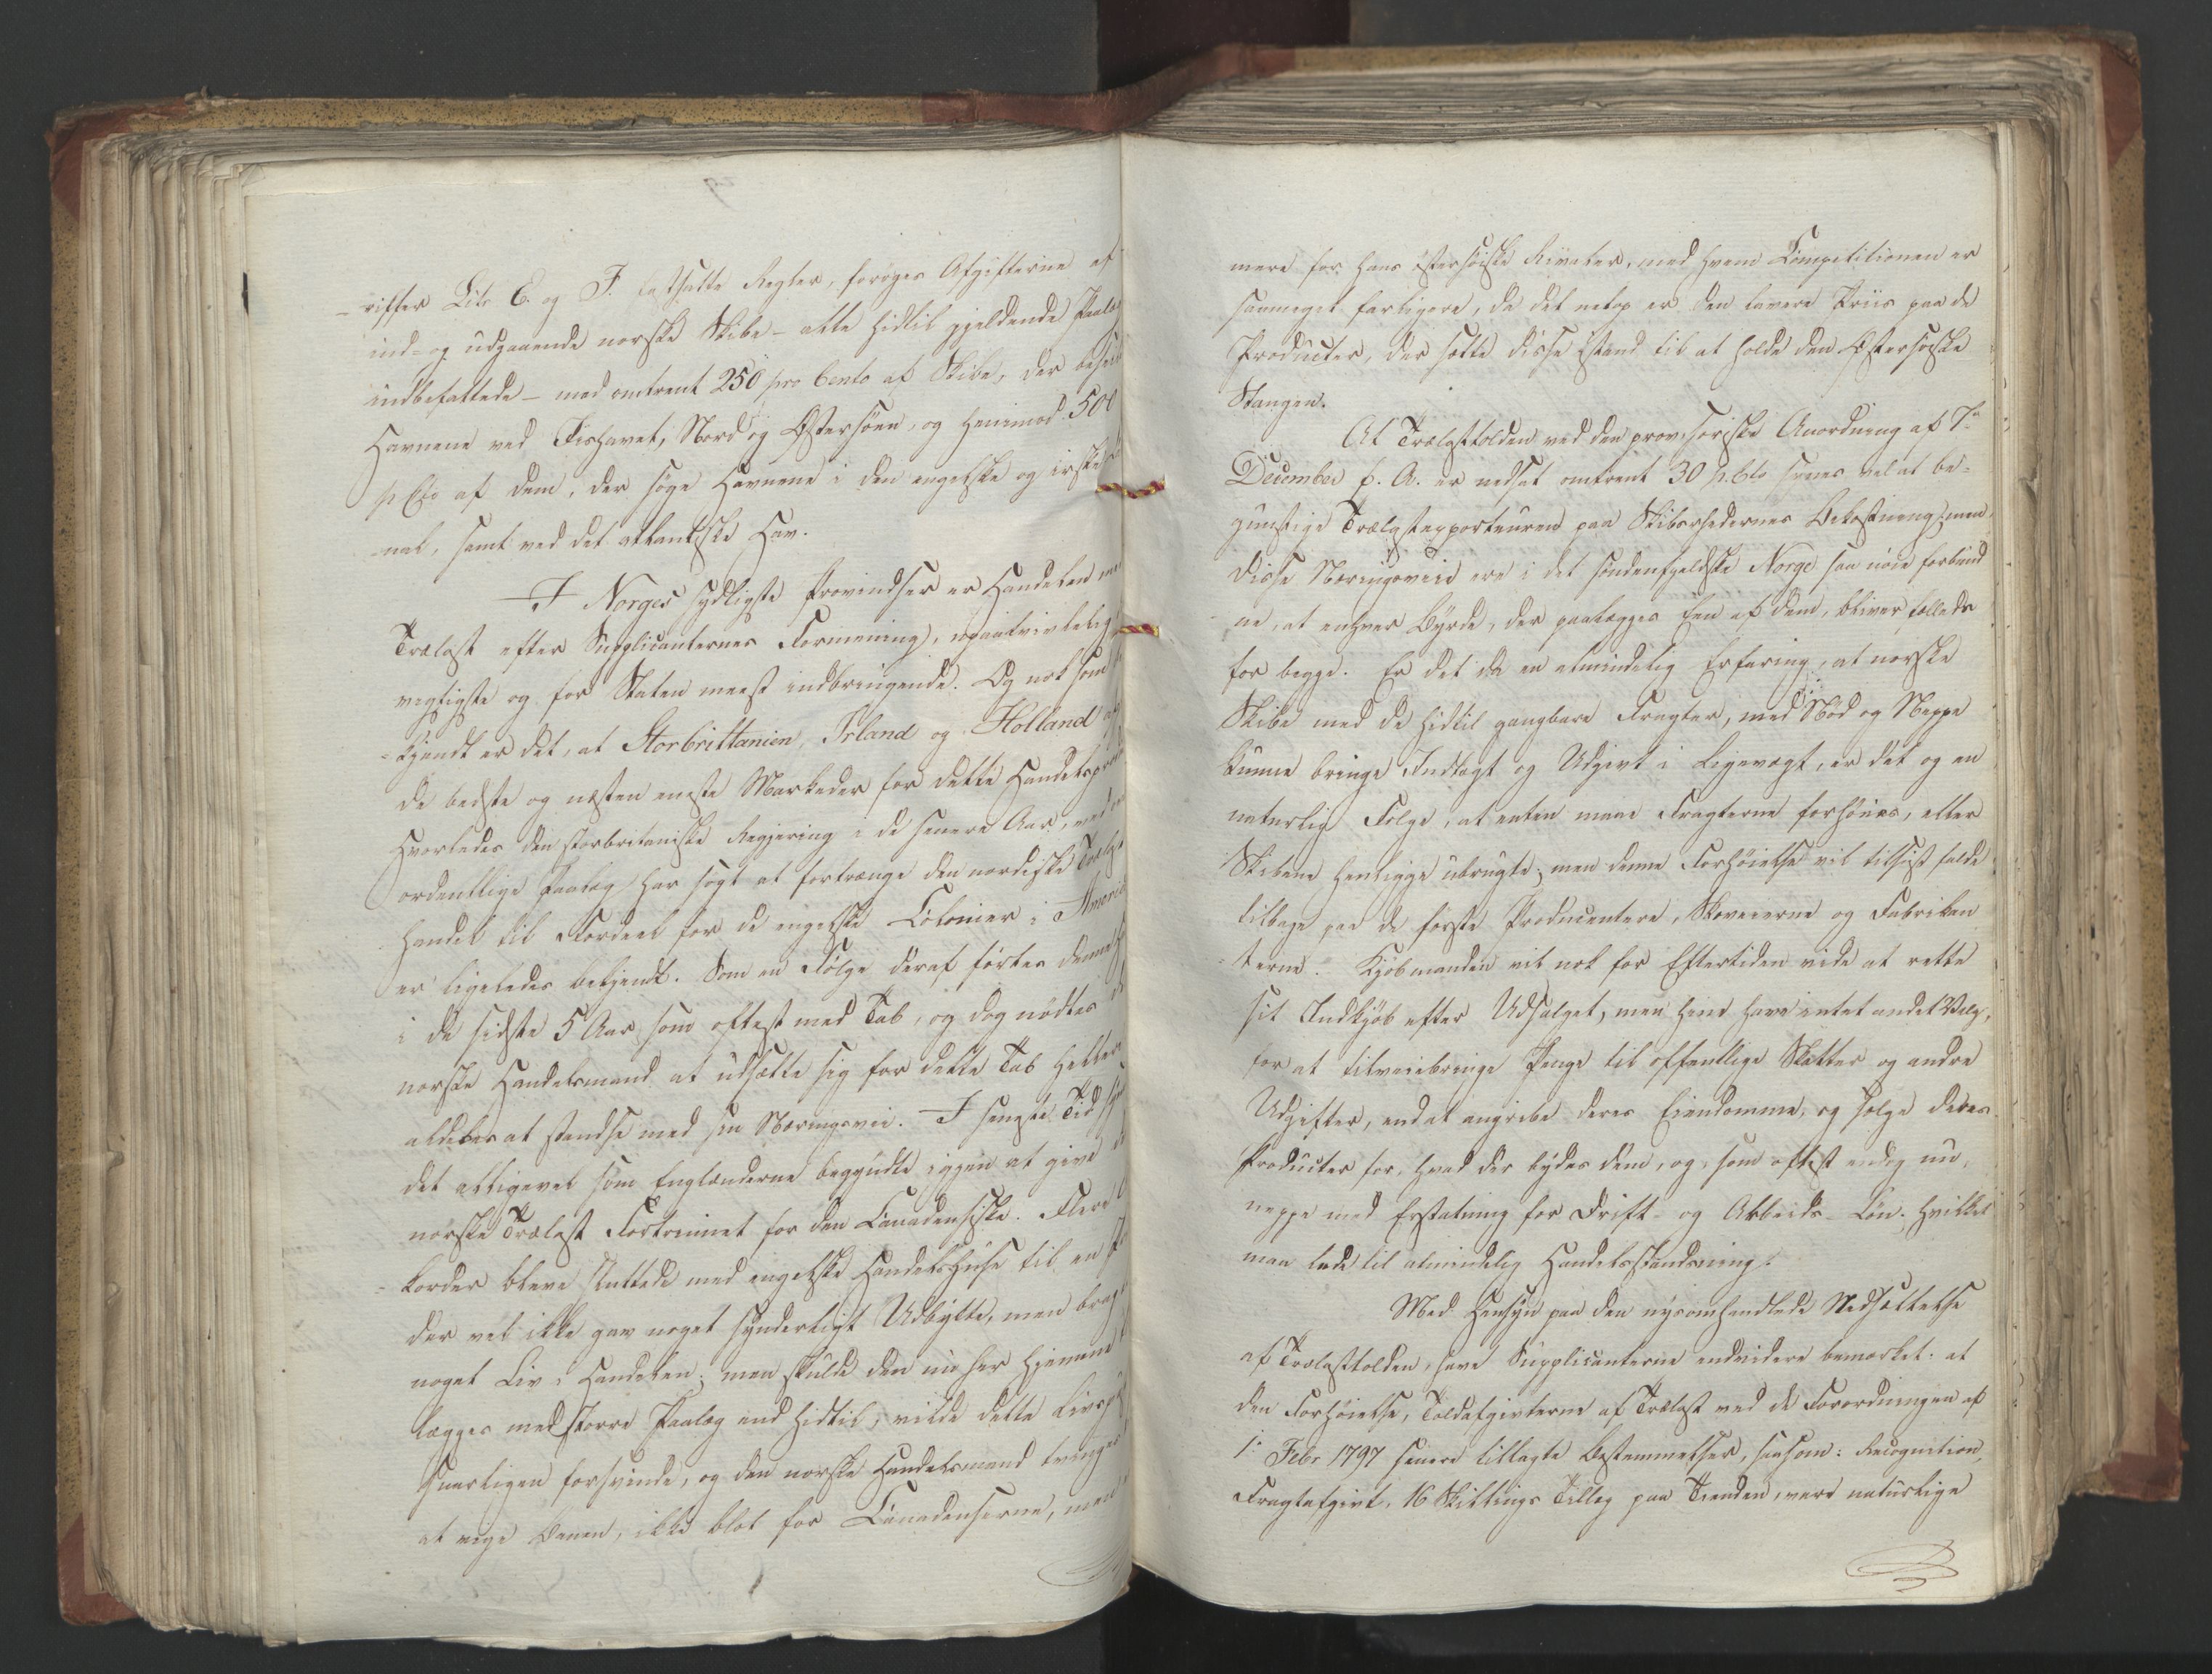 -riffer Litr E. og F. fastsatte Regler, forøges Afgifterne af
ind- og udgaaende norske Skibe - alle hidtil gjeldende Paalæg
indbefattede - med omtrent 250 pro Cento af Skibe, der besøge
Havnene ved Iishavet, Nord og Østersøen, og henimod 500
p Cto af dem, der søge Havnene i den engelske og irske
nal, samt ved det atlantiske Hav.
I Norges sydligste Provindser er Handelen med
Trælast efter Supplicanternes Formening, upaatvivlelig
vigtigste og for Staten meest indbringende. Og nok som
-kjendt er det, at Storbrittanien, Irland og Holland
de bedste og næsten eneste Markeder for dette Handels
Hvorledes den storbritaniske Regjering i de senere Aar, ved
ordentlige Paalæg har søgt at fortrænge den nordiske Trælast
Handel til Fordeel for de engelske Colonier i America
er ligeledes bekjendt. Som en Følge deraf førtes denne
i de sidste 5 Aar som oftest med Tab, og dog nødtes
norske Handelsmand at udsætte sig for dette Tab heller
aldeles at standse med sin Næringsvei. I seneste Tid
det alligevel som Englænderne begyndte igjen at give
norske Trælast Fortrinnet for den Canadensiske. Flere
-korder bleve sluttede med engelske Handelshuse til en
der vel ikke gav noget synderligt Udbytte, men bragte
noget Liv i Handelen; men skulde den nu her hjemme
lægges med større Paalæg end hidtil, vilde dette Livs
snarligen forsvinde, og den norske Handelsmand tvinges
at vige Banen, ikke blot for Canadenserne, men
mere for hans østersøiske Rivaler, med hvem Competitionen er
saameget farligere, da det netop er den lavere Priis paa de
Producter, der sætte disse istand til at holde den Østersøiske
Stangen.
At Trælasttolden ved den provisoriske Anordning af 7de
December f. A. er nedsat omtrent 30 p. Cto synes vel at be-
gunstige Trælastexporteuren paa Skibsrhedernes Bekostning; men
disse Næringsveie ere i det søndenfjeldske Norge saa nøie forbund
ne, at enhver Byrde, der paalægges Een af dem, bliver fælleds
for begge. Er det da en almindelig Erfaring, at norske
Skibe med de hidtil gangbare Fragter, med Nød og Neppe
kunne bringe Indtægt og Udgivt i Ligevægt, er det og en
naturlig Følge, at enten maae Fragterne forhøies, eller
Skibene henligge ubrugte; men denne Forhøielse vil tilsidst falde
tilbage paa de første Producentere, Skoveierne og Fabriken
-terne. Kjøbmanden vil nok for Eftertiden vide at rette
sit Indkjøb efter Udsalget, men hine have intet andet Valg,
for at tilveiebringe Penge til offentlige Skatter og andre
Udgifter, end at angribe deres Eiendomme, og sælge deres
Producter for, hvad der bydes dem, og, som oftest endog nu,
neppe med Erstatning for Drift- og Arbeids-Løn. Hvilket
maa lede til almindelig Handelsstandsning.
Med Hensyn paa den nysomhandlede Nedsættelse
af Trælasttolden, have Supplicanterne endvidere bemærket: at
den Forhøielse, Toldafgivterne af Trælast ved de Forordningen af
1. Febr 1797 senere tillagte Bestemmelser, saasom: Recognition,
Fragtafgivt, 16 Skillings Tillæg paa Tienden, vare naturlige